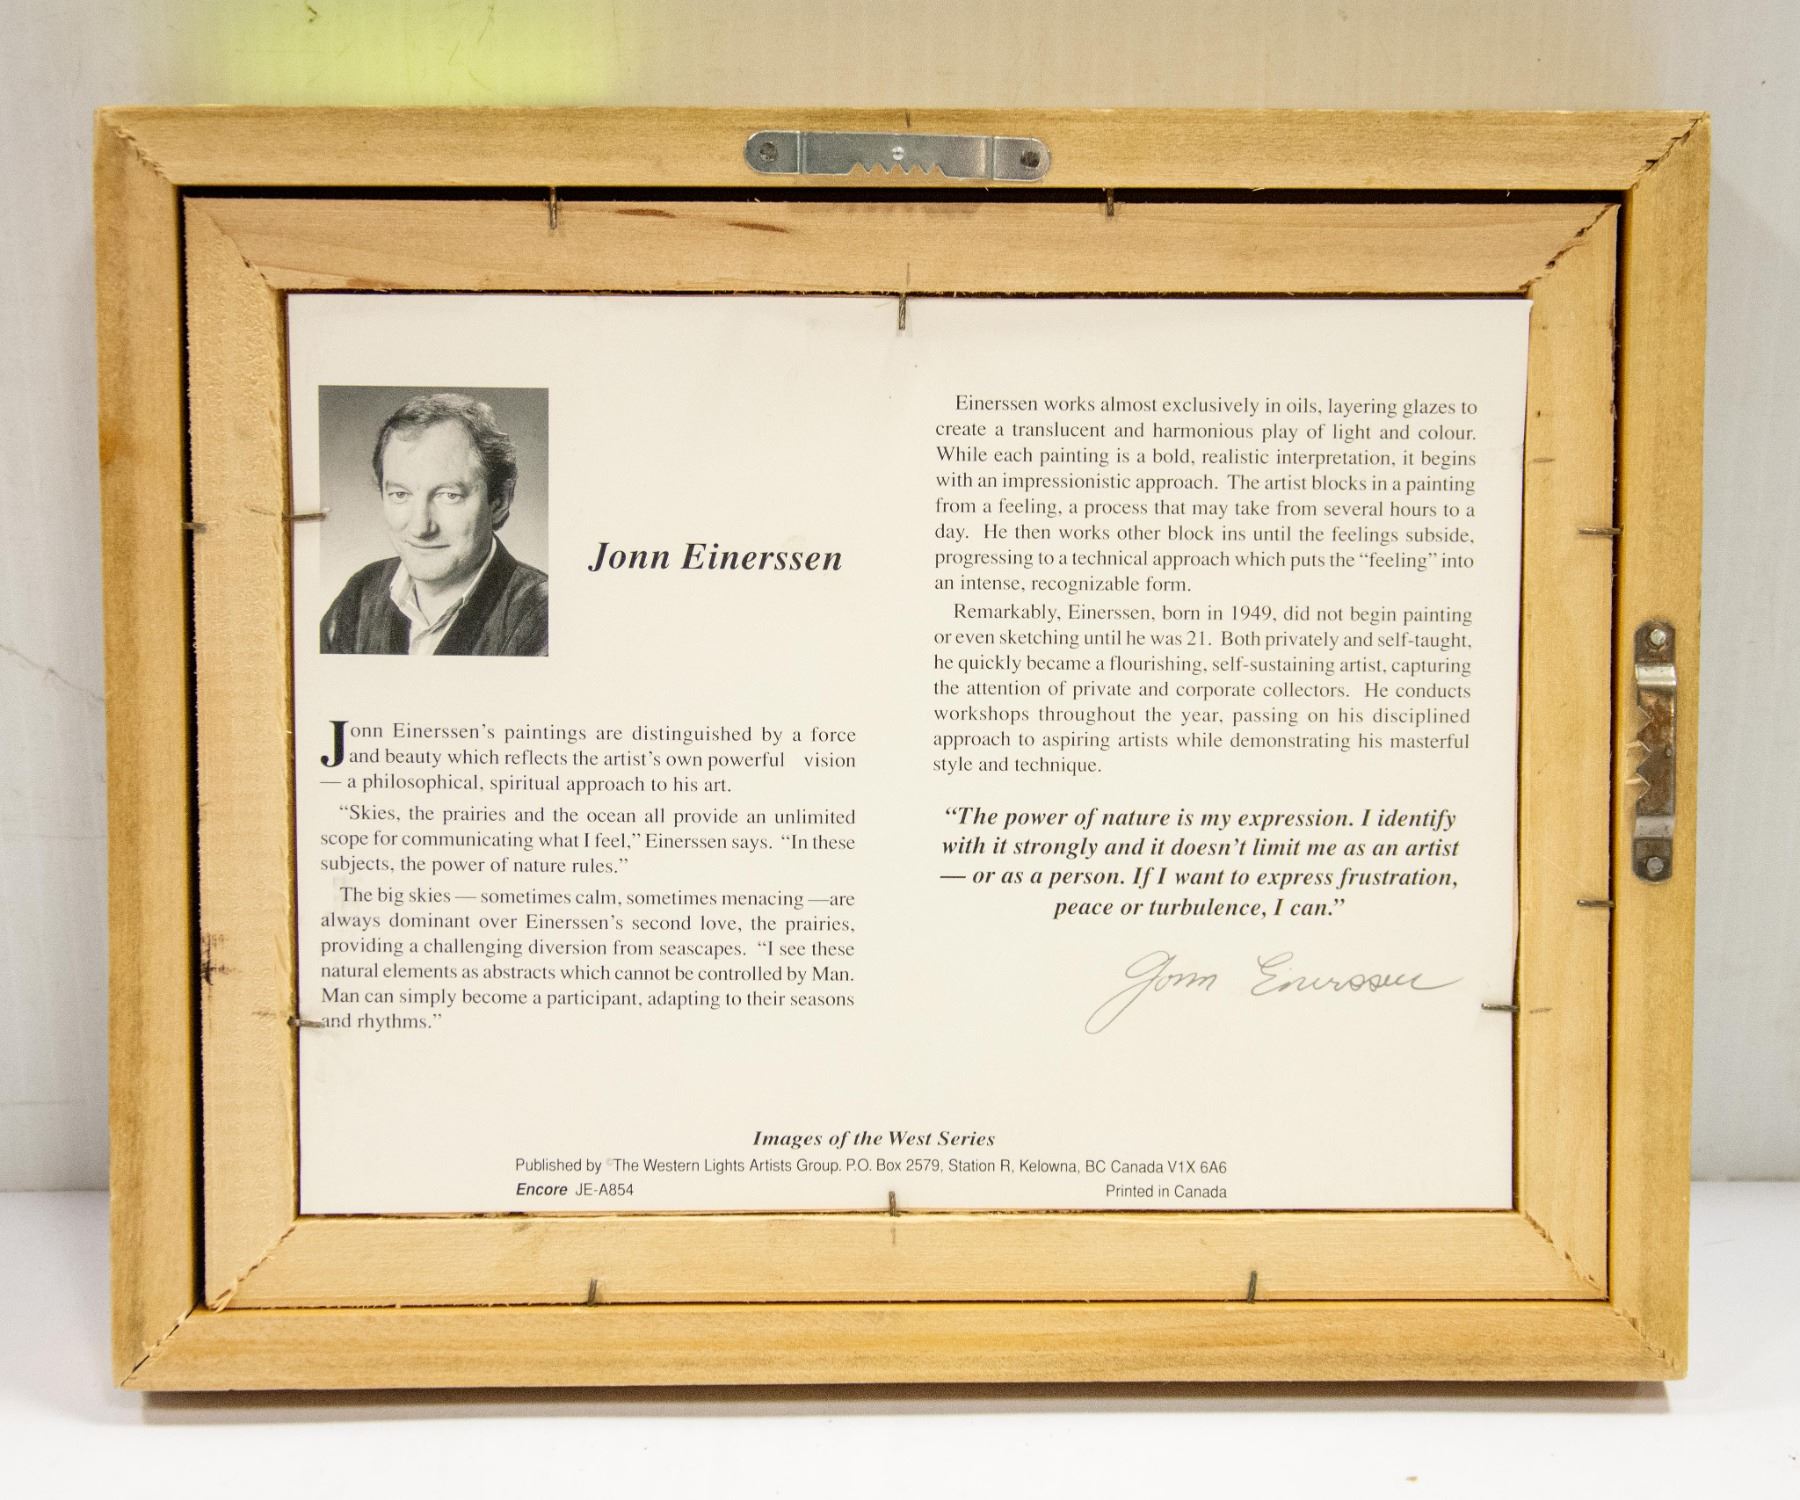 Jonn Einerssen
Jonn Einerssen's paintings are distinguished by a force
and beauty which reflects the artist's own powerful vision
— a philosophical, spiritual approach to his art.
“Skies, the prairies and the ocean all provide an unlimited
scope for communicating what I feel,” Einerssen says. “In these
subjects, the power of nature rules.”
The big skies — sometimes calm, sometimes menacing —are
always dominant over Einerssen's second love, the prairies,
providing a challenging diversion from seascapes. “I see these
natural elements as abstracts which cannot be controlled by Man.
Man can simply become a participant, adapting to their seasons
and rhythms.”
Einerssen works almost exclusively in oils, layering glazes to
create a translucent and harmonious play of light and colour.
While each painting is a bold, realistic interpretation, it begins
with an impressionistic approach. The artist blocks in a painting
from a feeling, a process that may take from several hours to a
day. He then works other block ins until the feelings subside,
progressing to a technical approach which puts the “feeling” into
an intense, recognizable form.
Remarkably, Einerssen, born in 1949, did not begin painting
or even sketching until he was 21. Both privately and self-taught,
he quickly became a flourishing, self-sustaining artist, capturing
the attention of private and corporate collectors. He conducts
workshops throughout the year, passing on his disciplined
approach to aspiring artists while demonstrating his masterful
style and technique.
“The power of nature is my expression. I identify
with it strongly and it doesn't limit me as an artist
— or as a person. If I want to express frustration,
peace or turbulence, I can.”
Jonn Einerssen
Images of the West Series
Published by ©The Western Lights Artists Group. P.O. Box 2579, Station R, Kelowna, BC Canada V1X 6A6
Encore JE-A854 Printed in Canada